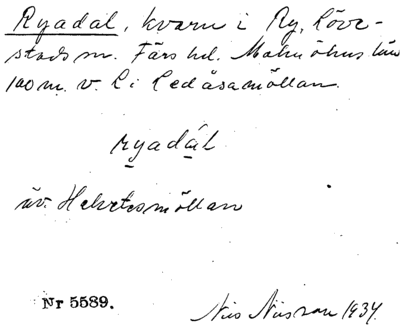 Ryadal, kvarn i Ry, Löve-
stads sn. Färs hd. Malmöhus län
100 m. v. L i Ledåsamöllan.
ryadál
äv. Helvetesmöllan
Nr 5589.
Nils Nilsson 1934.